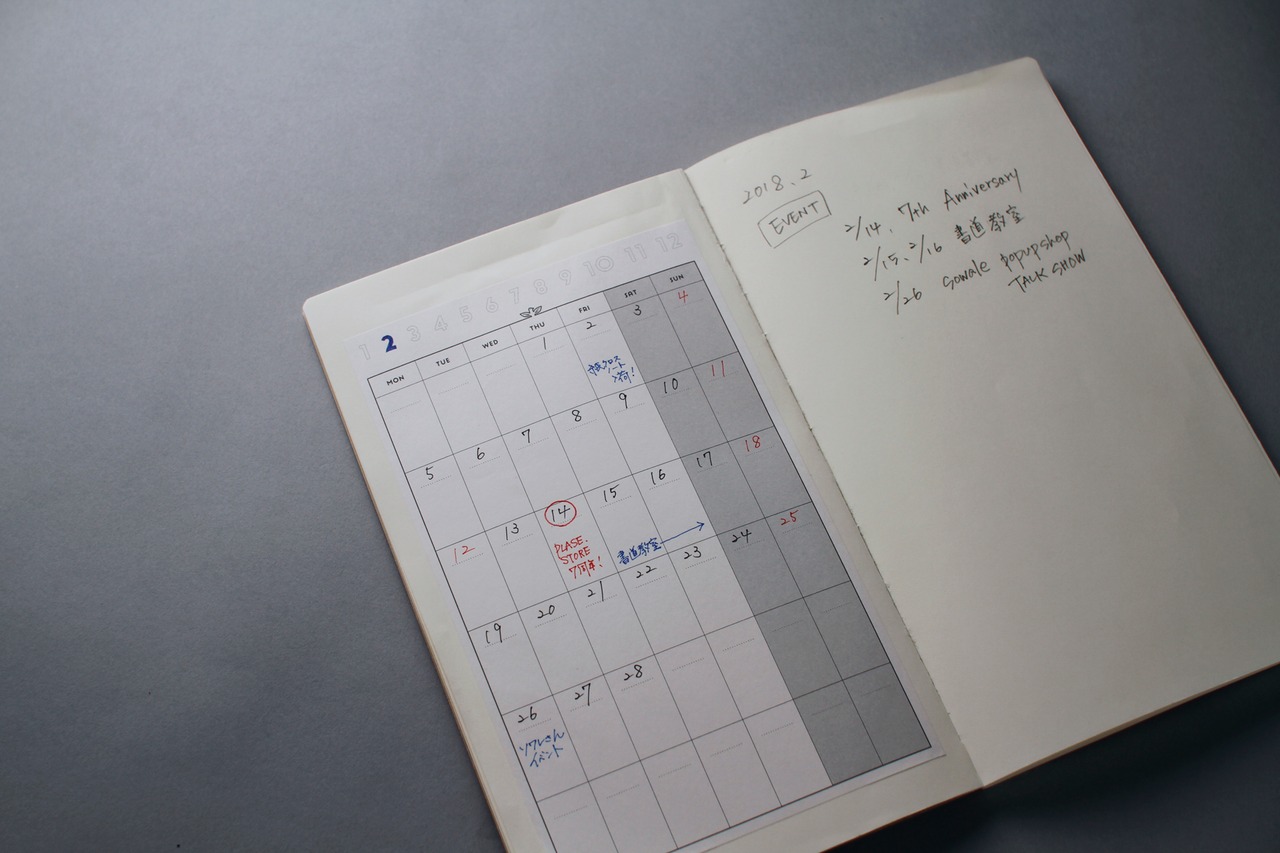 1 2 3 4 5 6 7 8 9 10 11 12
MON TUE WED THU FRI SAT SUN
1 2 3 4
クロス
ノート
入荷!
5 6 7 8 9 10 11
12 13 14 15 16 17 18
PLASE.
STORE
7周年!
書道教室
19 20 21 22 23 24 25
26 27 28
ソワレさん
イベント
2018.2
EVENT
2/14. 7th Anniversary
2/15、2/16 書道教室
2/26 sowale popupshop
TALK SHOW